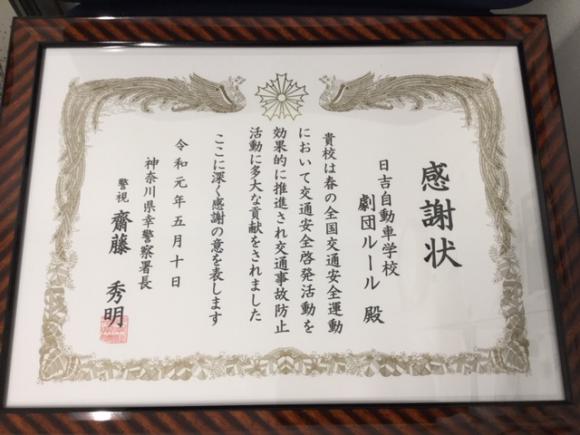 感謝状
日吉自動車学校
劇団ルール 殿
貴校は春の全国交通安全運動
において交通安全啓発活動を
効果的に推進され交通事故防止
活動に多大な貢献をされました
ここに深く感謝の意を表します
令和元年五月十日
神奈川県幸警察署長
警視 齋藤 秀明